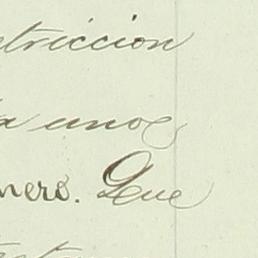 striccion
a unos
nero. Que